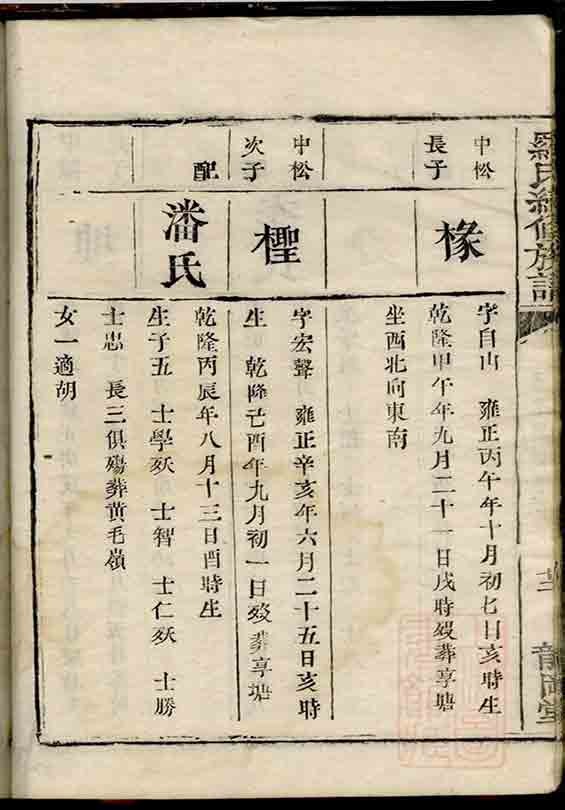 羅氏續修族譜
龍岡堂
中松
長子
椽
字自山　雍正丙午年十月初七日亥時生
乾隆甲午年九月二十一日戌時歿葬享塘
坐西北向東南
中松
次子
檉
字宏聲　雍正辛亥年六月二十五日亥時
生　乾隆己酉年九月初一日歿葬享塘
配
潘氏
乾隆丙辰年八月十三日酉時生
生子五　士學殀　士智　士仁殀　士勝
士忠　長三俱殤葬黃毛嶺
女一適胡